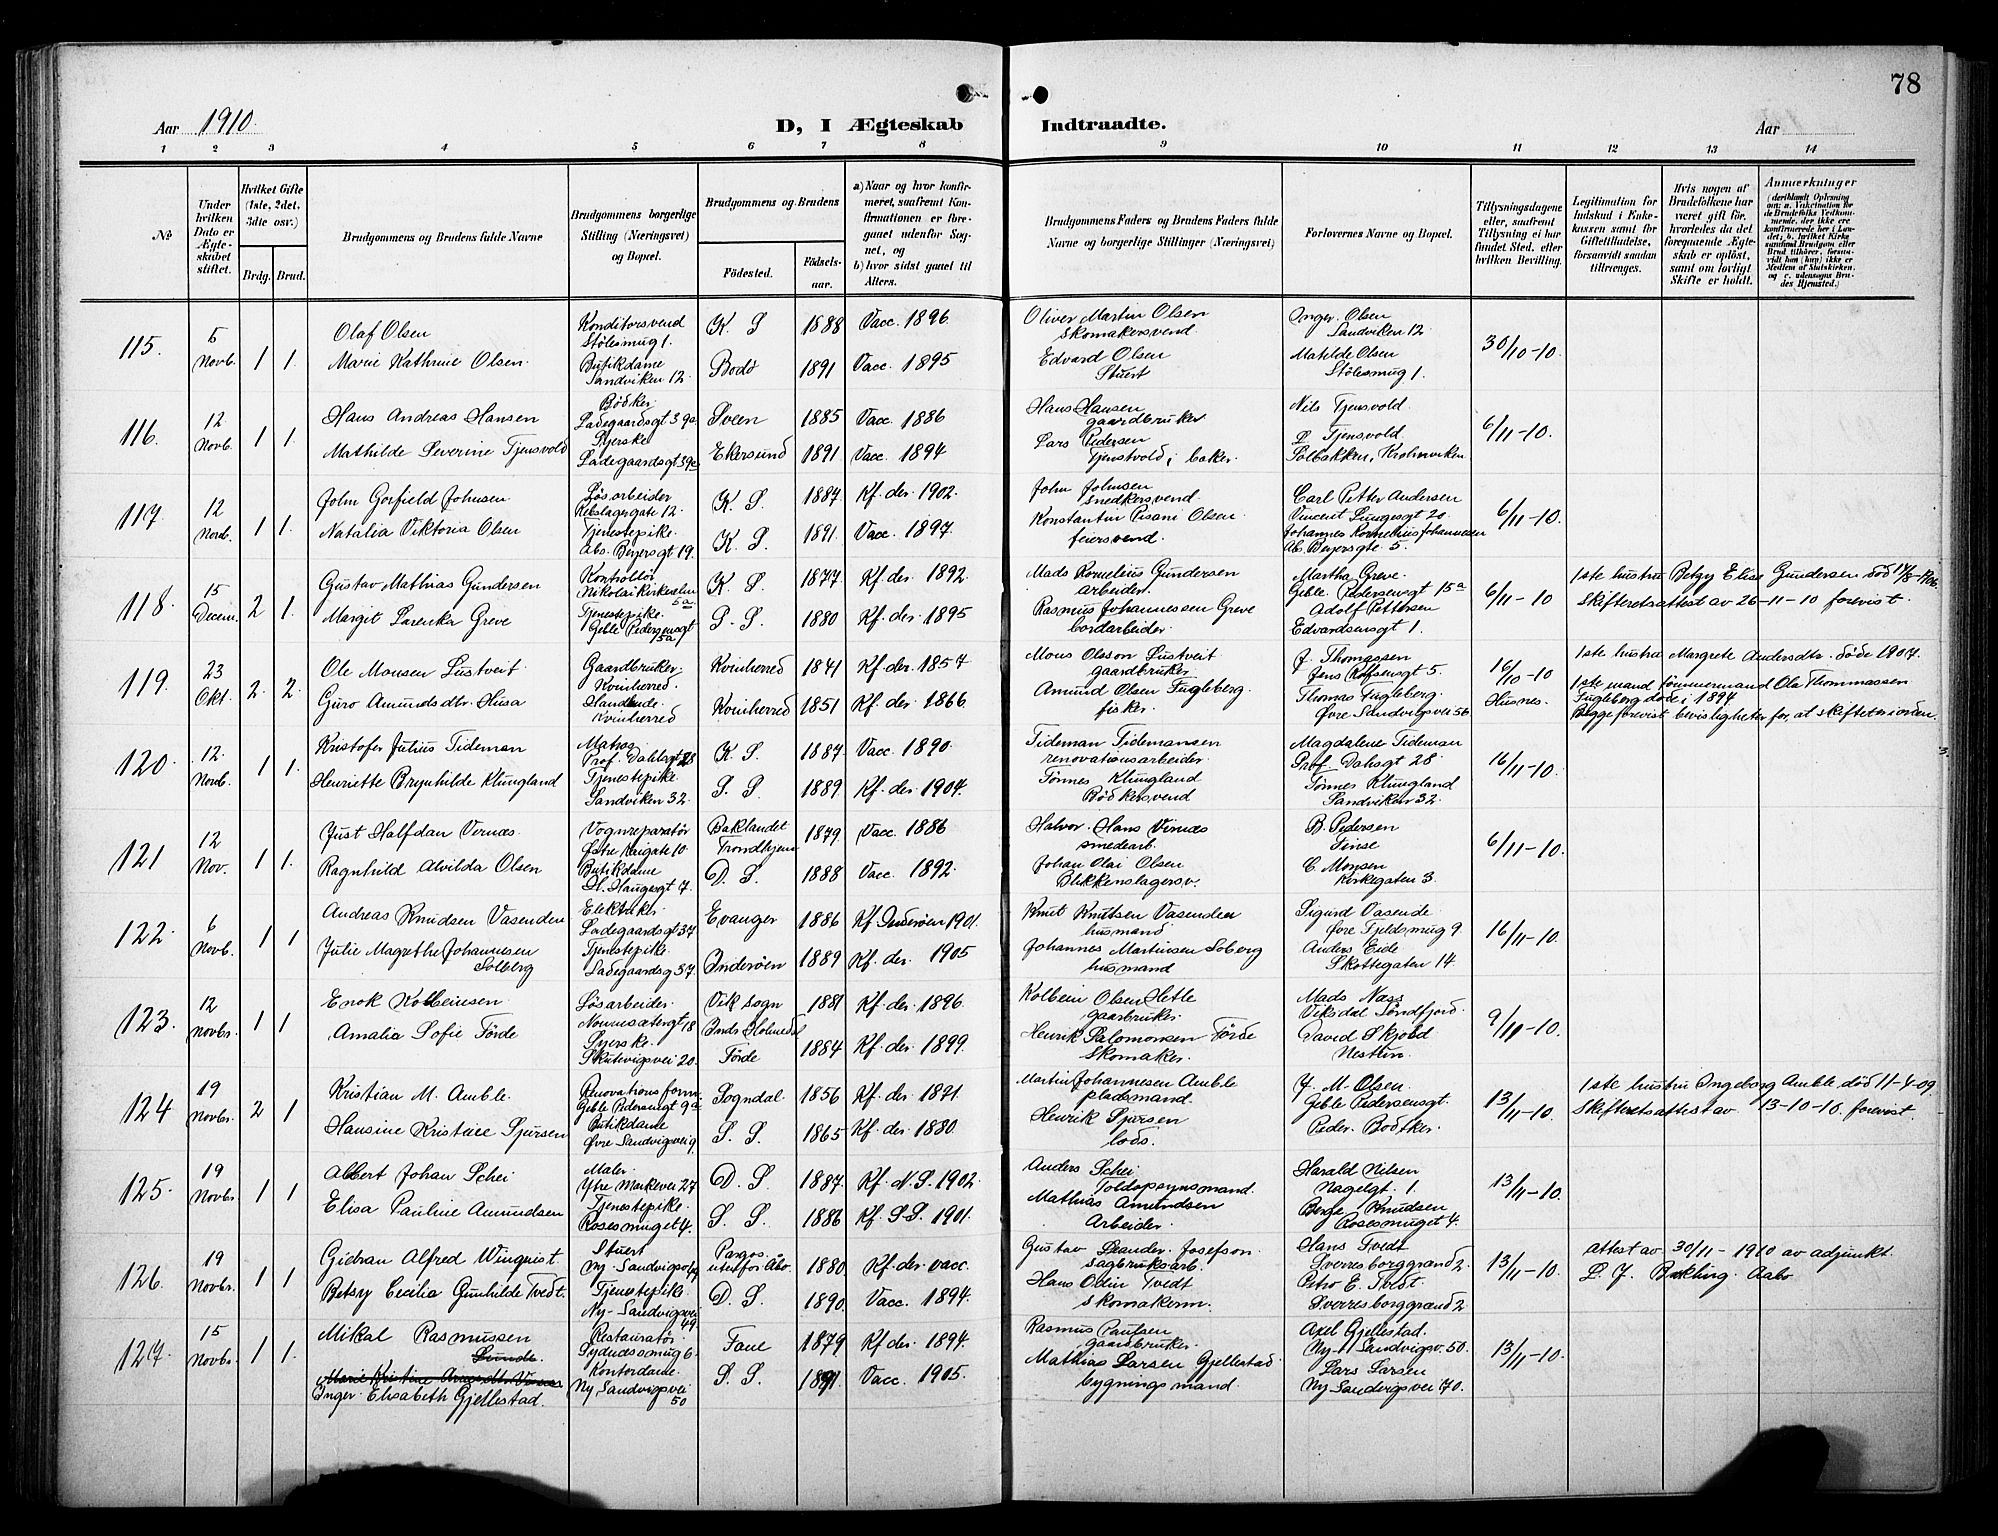 78
Aar 1910.
D, I Ægteskab
Indtraadte.
Aar
1 2 3 4 5 6 7 8 9 10 11 12 13 14
№
Under hvilken Dato er Ægteskabet stiftet.
Hvilket Gifte (1ste, 2det, 3die osv.)
Brdg. Brud.
Brudgommens og Brudens fulde Navne
Brudgommens borgerlige Stilling (Næringsvei) og Bopæl.
Brudgommens og Brudens
Fødested.
Fødselsaar.
a) Naar og hvor konfirmeret, saafremt Konfirmationen er foregaaet udenfor Sognet, og
b) hvor sidst gaaet til Alters.
Brudgommens Faders og Brudens Faders fulde Navne og borgerlige Stillinger (Næringsvei)
Forlovernes Navne og Bopæl.
Tillysningsdagene eller, saafremt Tillysning ei har fundet Sted, efter hvilken Bevilling.
Legitimation for Indskud i Enkekassen samt for Giftetilladelse, forsaavidt saadan tiltrænges.
Hvis nogen af Brudefolkene har været gift før, hvorledes da det foregaaende Ægteskab er opløst, samt om lovligt Skifte er holdt.
Anmærkninger
115. 5 Novb. 1 1.
Olaf Olsen Konditorsvend Stølesmug 1. K. S 1888 Vacc. 1896 Oliver Martin Olsen skomakersvend Inger Olsen Sandviken 12 30/10-10.
Marie Kathrine Olsen. Butikdame Sandviken 12. Bodø 1891 Vacc. 1895 Edvard Olsen Stuert Matilde Olsen Stølesmug 1.
116. 12 Novb. 1 1.
Hans Andreas Hansen Bødker Ladegaardsgt 39a Sveen 1885 Vacc. 1886 Hans Hansen gaardbruker Nils Tjensvold. 6/11-10.
Mathilde Severine Tjensvold Syerske Ladegaardsgt 39a Ekersund 1891 Vacc. 1894 Lars Pedersen Tjenstvold, baker. L Tjensvold. Solbakken, Krohnviken
117. 12 Novb. 1 1.
John Gorfield Johnsen Løsarbeider Rebslagergate 12. K. S. 1887 Kf. der. 1902. John Johnsen snedkersvend Carl Petter Andersen Vincent Lungesgt 20. 6/11-10.
Natalia Viktoria Olsen Tjenestepike. Abs. Beyersgt 19. K. S. 1891. Vacc. 1897. Konstantin Pisani Olsen feiersvend. Johannes Kornelius Johannesen Ab. Beyersgte 5.
118. 15 Decem. 2 1.
Gustav Mathias Gundersen Kontrollør Nikolaikirkealm 5a K. S. 1877 Kf. der. 1892. Mads Kornelius Gundersen arbeider. Martha Greve. Geble Pedersensgt 15a 6/11-10 1ste hustru Betzy Elise Gundersen død
Margit Larenka Greve Tjenestepike. Geble Pedersensgt 5a S. S. 1880 Kf. der. 1895 Rasmus Johannessen Greve bordarbeider. Adolf Pettersen Edvardsensgt 1. Skifteretsattest av 26-11-10 forevist.
119. 23 Okt. 2. 2.
Ole Monsen Lustveit Gaardbruker. Kvinherred. Kvinherred 1841 Kf. der. 1857 Mons Olsson Lustveit gaardbruker J. Thomassen Jens Rolfsensgt 5. 16/10-10 Husnes. 1ste hustru Margrete Andersdtr. døde 1907.
Guro Amundsdtr. Husa Handlende. Kvinherred Kvinherred 1851 Kf. der. 1866. Amund Olsen Fugleberg. fisker. Thomas Fugleberg. Øvre Sandvigsvei 56 1ste mand tømmermand Ola Thommassen Fugleberg døde i 1894
Begge forevist bevisligheter for, at skiftet er i orden.
120. 12. Novb. 1 1.
Kristofer Julius Tideman Matros Prof. Dahlsgt 28 K. S. 1887. Vacc. 1890. Tideman Tidemansen renovationsarbeider. Magdalene Tideman Prof. Dahsgt 28. 16/11-10.
Henriette Brynhilde Klungland Tjenestepike Sandviken 32. S. S. 1889. Kf. der. 1904. Tønnes Klungland Bødkersvend Tønnes Klungland Sandviken 32.
121. 12 Nov. 1 1.
Just Halfdan Vernæs. Vognreparatør Østre Kaigate 10. Baklandet Trondhjem 1879 Vacc. 1886 Halvor Hans Virnæs smedearb. B. Pedersen Finse 6/11-10.
Ragnhild Alvilda Olsen Butikdame H. Haugesgt 7. D. S. 1888 Vacc. 1892. Johan Olai Olsen Blikkenslagersv. C. Monsen Kirkegaten 3.
122. 6 Novb. 1 1
Andreas Knudsen Vasenden Elektriker. Ladegaardsgt 37 Evanger 1886 Kf. Inderøen 1901. Knut Knutsen Vasenden husmand Sigurd Vasende Øvre Fjeldsmug 9 16/11-10.
Julie Magrethe Johannesen Solberg Tjenestepike. Ladegaardsgt 37. Inderøen 1889 Kf. der. 1905 Johannes Martinsen Soberg husmand Anders Eide Skottegaten 14.
123. 12 Novbr. 1 1
Enok Kolbeinsen. Løsarbeider. Nonnesætergt 18 Vik sogn 1881 Kf. der. 1896. Kolbein Olsen Hetle gaarbruker. Mads Næss Viksdal Søndfjord. 9/11-10.
Amalia Sofie Førde Syerske. Skutevigsvei 20. Førde 1884 Kf. der. 1899. Henrik Salomonsen Førde Skomaker. David Skjold Nesttun.
124 19 Novbr. 2 1
Kristian M. Amble. Renovations form. Geble Pedersensgt 9a Sogndal. 1856 Kf. der. 1871. Martin Johannesen Amble pladsmand. J. M. Olsen. Geble Pedersensgt. 13/11-10. 1ste hustru Ingeborg Amble død 11-4-09.
Hansine Kristine Sjursen Butikdame Øvre Sandvigsvei 9. S. S. 1865 Kf. der. 1880. Henrik Sjursen lods. Peder Bødtker. Skifteretsattest av 13-10-10. forevist.
125. 19 Novbr. 1 1
Albert Johan Schei Maler. Ytre Markevei 27 D. S. 1887. Kf. N. S. 1902. Anders Schei Toldopsynsmand. Harald Nilsen Nagelgt. 1. 13/11-10.
Elisa Pauline Amundsen Tjenestepike. Rosesmuget 4. S. S. 1886 Kf. S. S. 1901. Mathias Amundsen Arbeider. Berge Knudsen Rosesmuget 4.
126. 19 Novbr. 1 1
Gidran Alfred Winquist. Stuert Ny-Sandvigsv 49 Pargos. utenfor Åbo. 1880 Kf. der. vacc. Gustav Leander Josefson. sagbruksarb. Hans Tvedt Sverresborggrand 2. 13/11-10. attest av 30/11-1910 av adjunkt
Betsy Cecilia Gunhilde Tvedt. Tjenestepike. Ny-Sandvigsvei 49 D. S. 1890. Vacc. 1894. Hans Odin Tvedt skomakerm. Petro E. Tvedt. Sverresborggrænd 2 L. J. Aabo
127. 15 Novbr. 1 1.
Mikal Rasmussen Sunde. Restauratør. Lydnessmug 6. Fane 1879 Kf der. 1894. Rasmus Paulsen gaardbruker. Axel Gjellestad. Ny-Sandvigsv. 50. 13/11-10.
Marie Kristine
Inger Elisabeth Gjellestad. Kontordame. Ny Sandvigsvei 50 S. S. 1891. Vacc. 1905. Mathias Larsen Gjellestad bygningsmand. Lars Larsen Ny-Sandvigsvei 70.